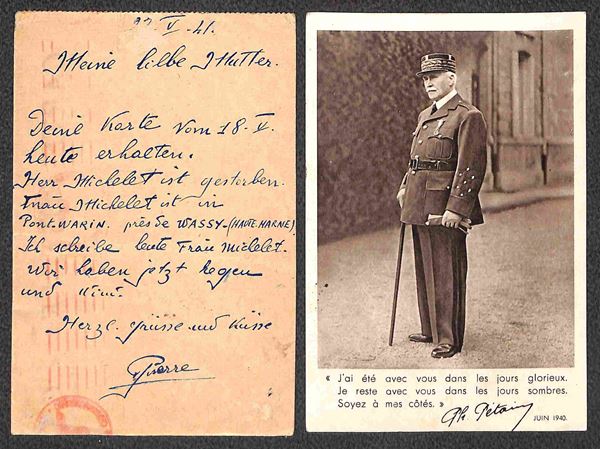 V. 41.
Meine liebe Mutter.
Deine Karte vom 18-V.
heute erhalten.
Herr Michelet ist gestorben.
Frau Michelet ist in
PONT-WARIN. près de WASSY-(HAUTE-MARNE)
Ich schreibe heute Frau Michelet.
Wir haben jetzt Regen
und
Herzl. Grüsse und Küsse
Pierre
« J'ai été avec vous dans les jours glorieux.
Je reste avec vous dans les jours sombres.
Soyez à mes côtés. »
Ph. Pétain
JUIN 1940.